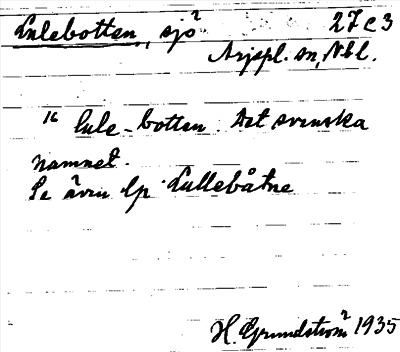 Lulebotten, sjö 27 c 3
Arjepl. sn, Nbl.
lule-botten. Det svenska
namnet.
Se även lp. Lullebåtne
H. Grundström 1935